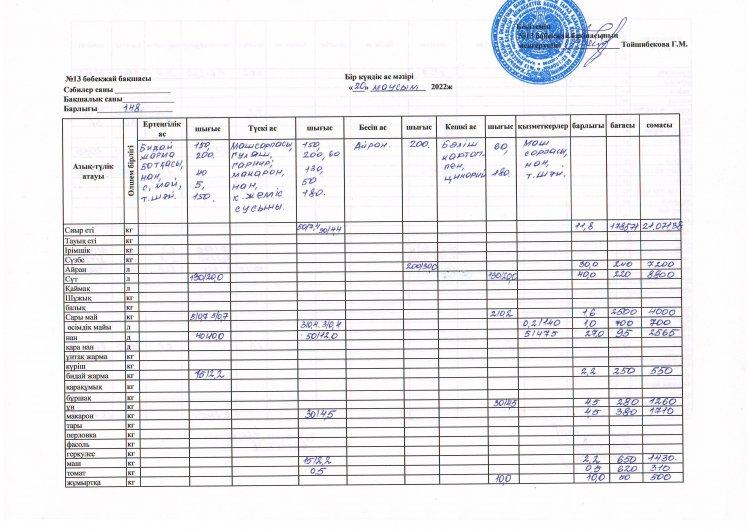 Бекітемін
№13 бөбекжай бақшасының
меңгерушісі Тойшибекова Г.М.
№13 бөбекжай бақшасы
Сәбилер саны
Бақшалық саны
Барлығы 148.
Бір күндік ас мәзірі
«20» маусым 2022ж
Азық-түлік атауы Өлшем бірлігі Ертеңгілік ас шығыс Түскі ас шығыс Бесін ас шығыс Кешкі ас шығыс қызметкерлер барлығы бағасы сомасы
Бидай 150, Машсорпасы, 150, Айран. 200. Бәліш 60, Маш
жарма 200. гуляш, 200, 60 картоп- сорпасы,
ботқасы, гарнир; 130, пен, нан,
нан, 40 макарон, 50 цикорий 180. т.шәй.
с, май, 5, нан, 180.
т.шәй. 150. к.жеміс
сусыны.
Сиыр еті кг 11,8 21.07138
Тауық еті кг
Ірімшік кг
Сүзбе кг
Айран л 200/30,0 30,0 240 7200
Сүт л 130/20,0 130/20,0 40,0 220 8800
Қаймақ кг
Шұжық кг
балық кг
Сары май кг 5/0,7 5/0,7 2/0,2 1,6 2500 4000
өсімдік майы кг 3/0,4. 3/0,4 0,2/140 1,0 700 700
нан д 40/40,0 50/12,0 5/475 27,0 95 2565
қара нан д
ұнтақ жарма кг
күріш кг
бидай жарма кг 15/2,2 2,2 250 550
қарақұмық кг
бұршақ кг
ұн кг 30/4,5 4,5 280 1260
макарон кг 30/4,5 4,5 380 1710
тары кг
перловка кг
фасоль кг
геркулес кг
маш кг 15/2,2 2,2 650 1430.
томат кг 0,5 0,5 620 310
жұмыртқа кг 10,0 10,0 50 500